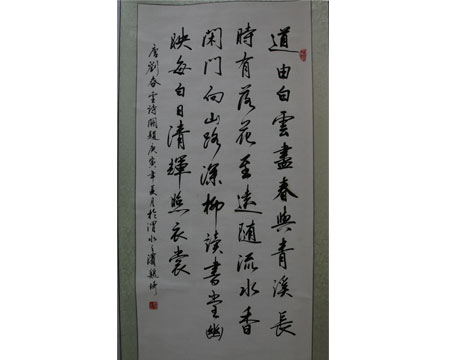 道由白雲盡春與青溪長
時有落花至遠隨流水香
閑門向山路深柳讀書堂幽
映每白日清輝照衣裳
唐劉昚虛詩闕題庚寅年夏月於渭水之濱